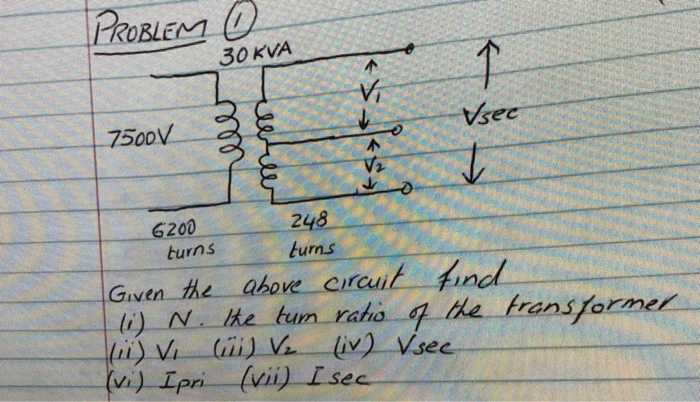 PROBLEM ①
30 KVA
V₁
Vsec
7500V
V₂
6200 turns
248 turns
Given the above circuit find
(i) N. the turn ratio of the transformer
(ii) V₁ (iii) V₂ (iv) Vsec
(vi) Ipri (vii) Isec